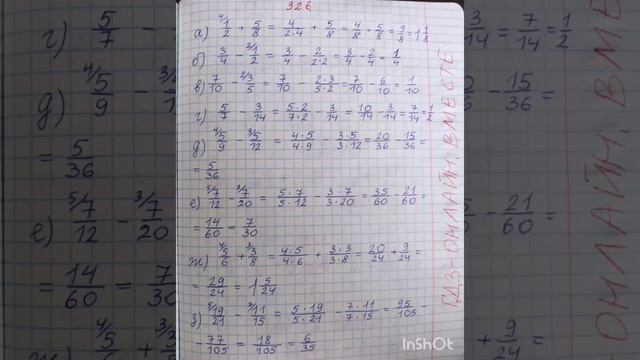 326
а) ⁴/1/2 + 5/8 = 4/2·4 + 5/8 = 4/8 + 5/8 = 9/8 = 1 1/8
б) 3/4 - ²/1/2 = 3/4 - 2/2·2 = 3/4 - 2/4 = 1/4
в) 7/10 - ²/3/5 = 7/10 - 2·3/5·2 = 7/10 - 6/10 = 1/10
г) 5/7 - 3/14 = 5·2/7·2 - 3/14 = 10/14 - 3/14 = 7/14 = 1/2
д) ⁴/5/9 - ³/5/12 = 4·5/4·9 - 3·5/3·12 = 20/36 - 15/36 =
= 5/36
е) ⁵/7/12 - ³/7/20 = 5·7/5·12 - 3·7/3·20 = 35/60 - 21/60 =
= 14/60 = 7/30
ж) ⁴/5/6 + ³/3/8 = 4·5/4·6 + 3·3/3·8 = 20/24 + 9/24 =
= 29/24 = 1 5/24
з) ⁵/19/21 - ⁷/11/15 = 5·19/5·21 - 7·11/7·15 = 95/105 -
- 77/105 = 18/105 = 6/35
ГДЗ-ОНЛАЙН. ВМЕСТЕ
InShOt